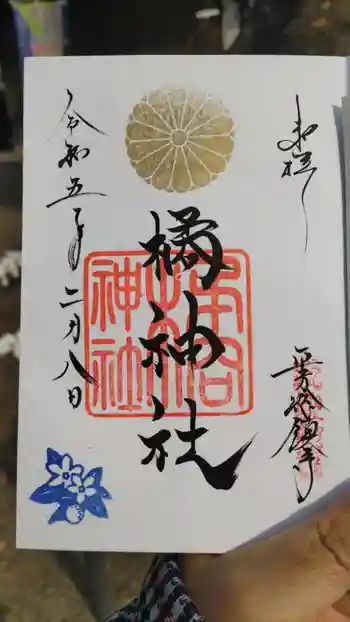 奉拝
橘神社
橘神社
令和五年二月八日